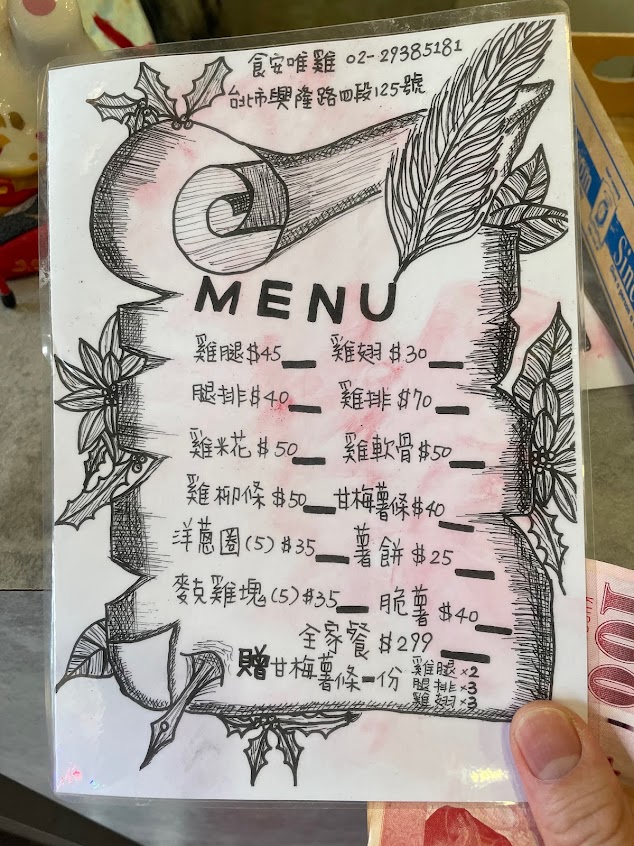 食安唯雞 02-29385181
台北市興隆路四段125號
MENU
雞腿$45 雞翅$30
腿排$40 雞排$70
雞米花$50 雞軟骨$50
雞柳條$50 甘梅薯條$40
洋蔥圈(5)$35 薯餅$25
麥克雞塊(5)$35 脆薯$40
全家餐 $299
贈甘梅薯條一份
雞腿x2
腿排x3
雞翅x3
100